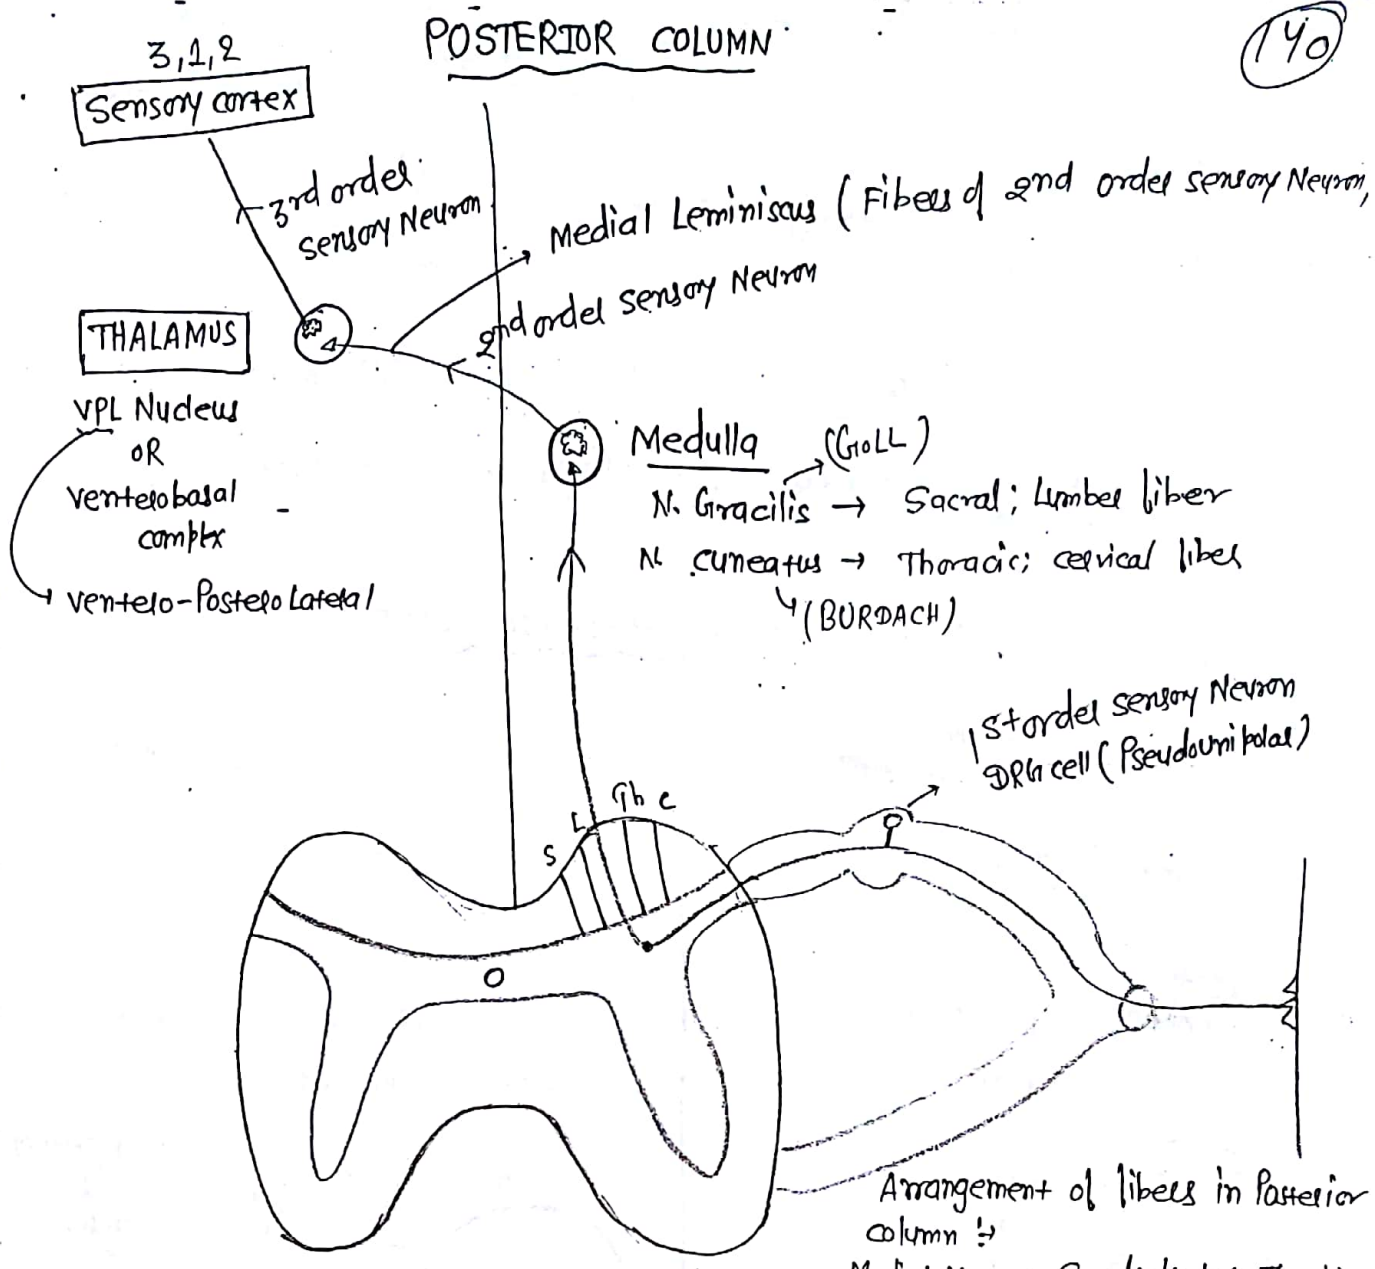 POSTERIOR COLUMN
140
3,1,2
Sensory cortex
3rd order
sensory Neuron
Medial Leminiscus (Fibers of 2nd order sensory Neuron,
2nd order sensory Neuron
THALAMUS
VPL Nucleus
OR
Venterobasal
complx
Ventero-Postero Lateral
Medulla
(GOLL)
N. Gracilis → Sacral; Lumber fiber
N. cuneatus → Thoracic; cervical fiber
(BURDACH)
1st order sensory Neuron
DRG cell (Pseudounipolar)
S L Th C
Arrangement of fibers in Posterior
column :→